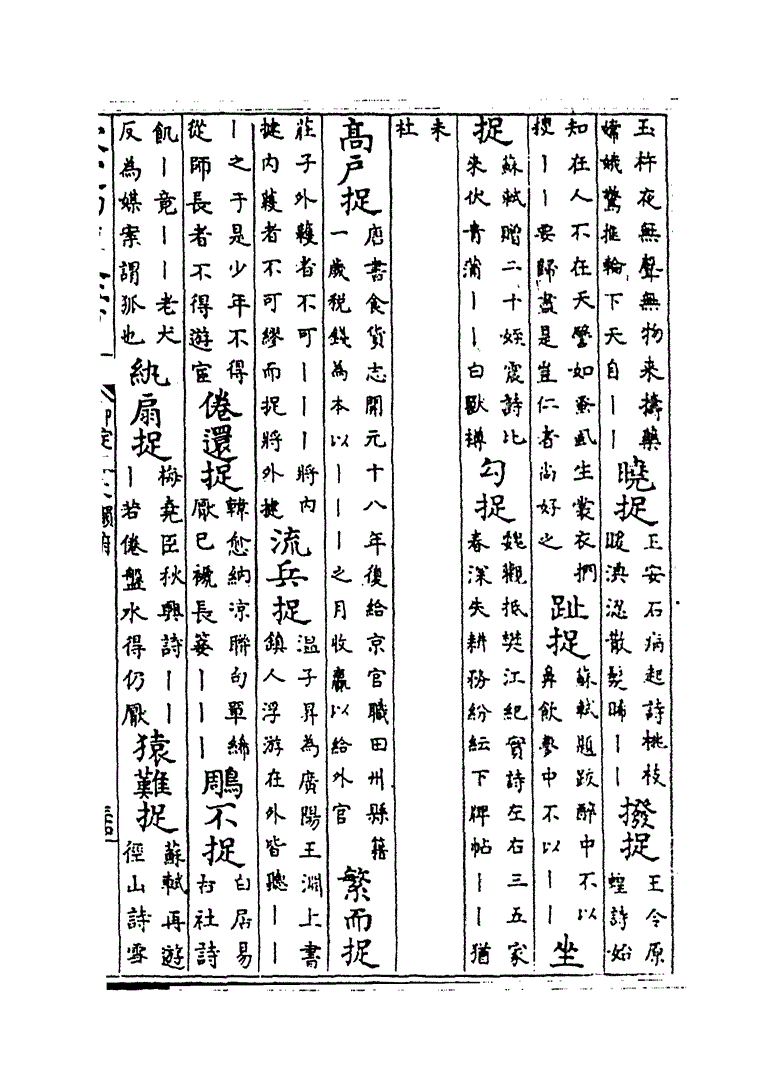 玉杵夜無聲無物来擣藥
嫦娥驚推輪下天自丨丨
曉捉
王安石病起詩桃枝
暖渙散髮晞丨丨
撥捉
王令原
蝗詩始
知在人不在天譬如蚤虱生裳衣捫
摟丨丨要歸盡是豈仁者尚好之
趾捉
蘇軾題跋醉中不以
鼻飲夢中不以丨丨
坐
捉
蘇軾贈二十姪震詩比
来伏青蒲丨丨白獸樽
勾捉
魏觀抵樊江紀實詩左右三五家
春深失耕務紛紜下牌帖丨丨猶
未
社
髙戸捉
唐書食貨志開元十八年復給京官職田州縣籍
一歲税錢為本以丨丨丨之月收贏以給外官
繁而捉
莊子外韄者不可丨丨丨將内
揵内韄者不可繆而捉將外揵
流兵捉
温子昇為廣陽王淵上書
鎮人浮游在外皆聽丨丨
丨之于是少年不得
從師長者不得遊宦
倦還捉
韓愈納涼聯句單絺
厭已褫長箑丨丨丨
鵰不捉
白居易
村社詩
飢丨竟丨丨老犬
反為媒案謂狐也
紈扇捉
梅堯臣秋興詩丨丨
丨若倦盤水得仍厭
猿難捉
蘇軾再遊
徑山詩雪